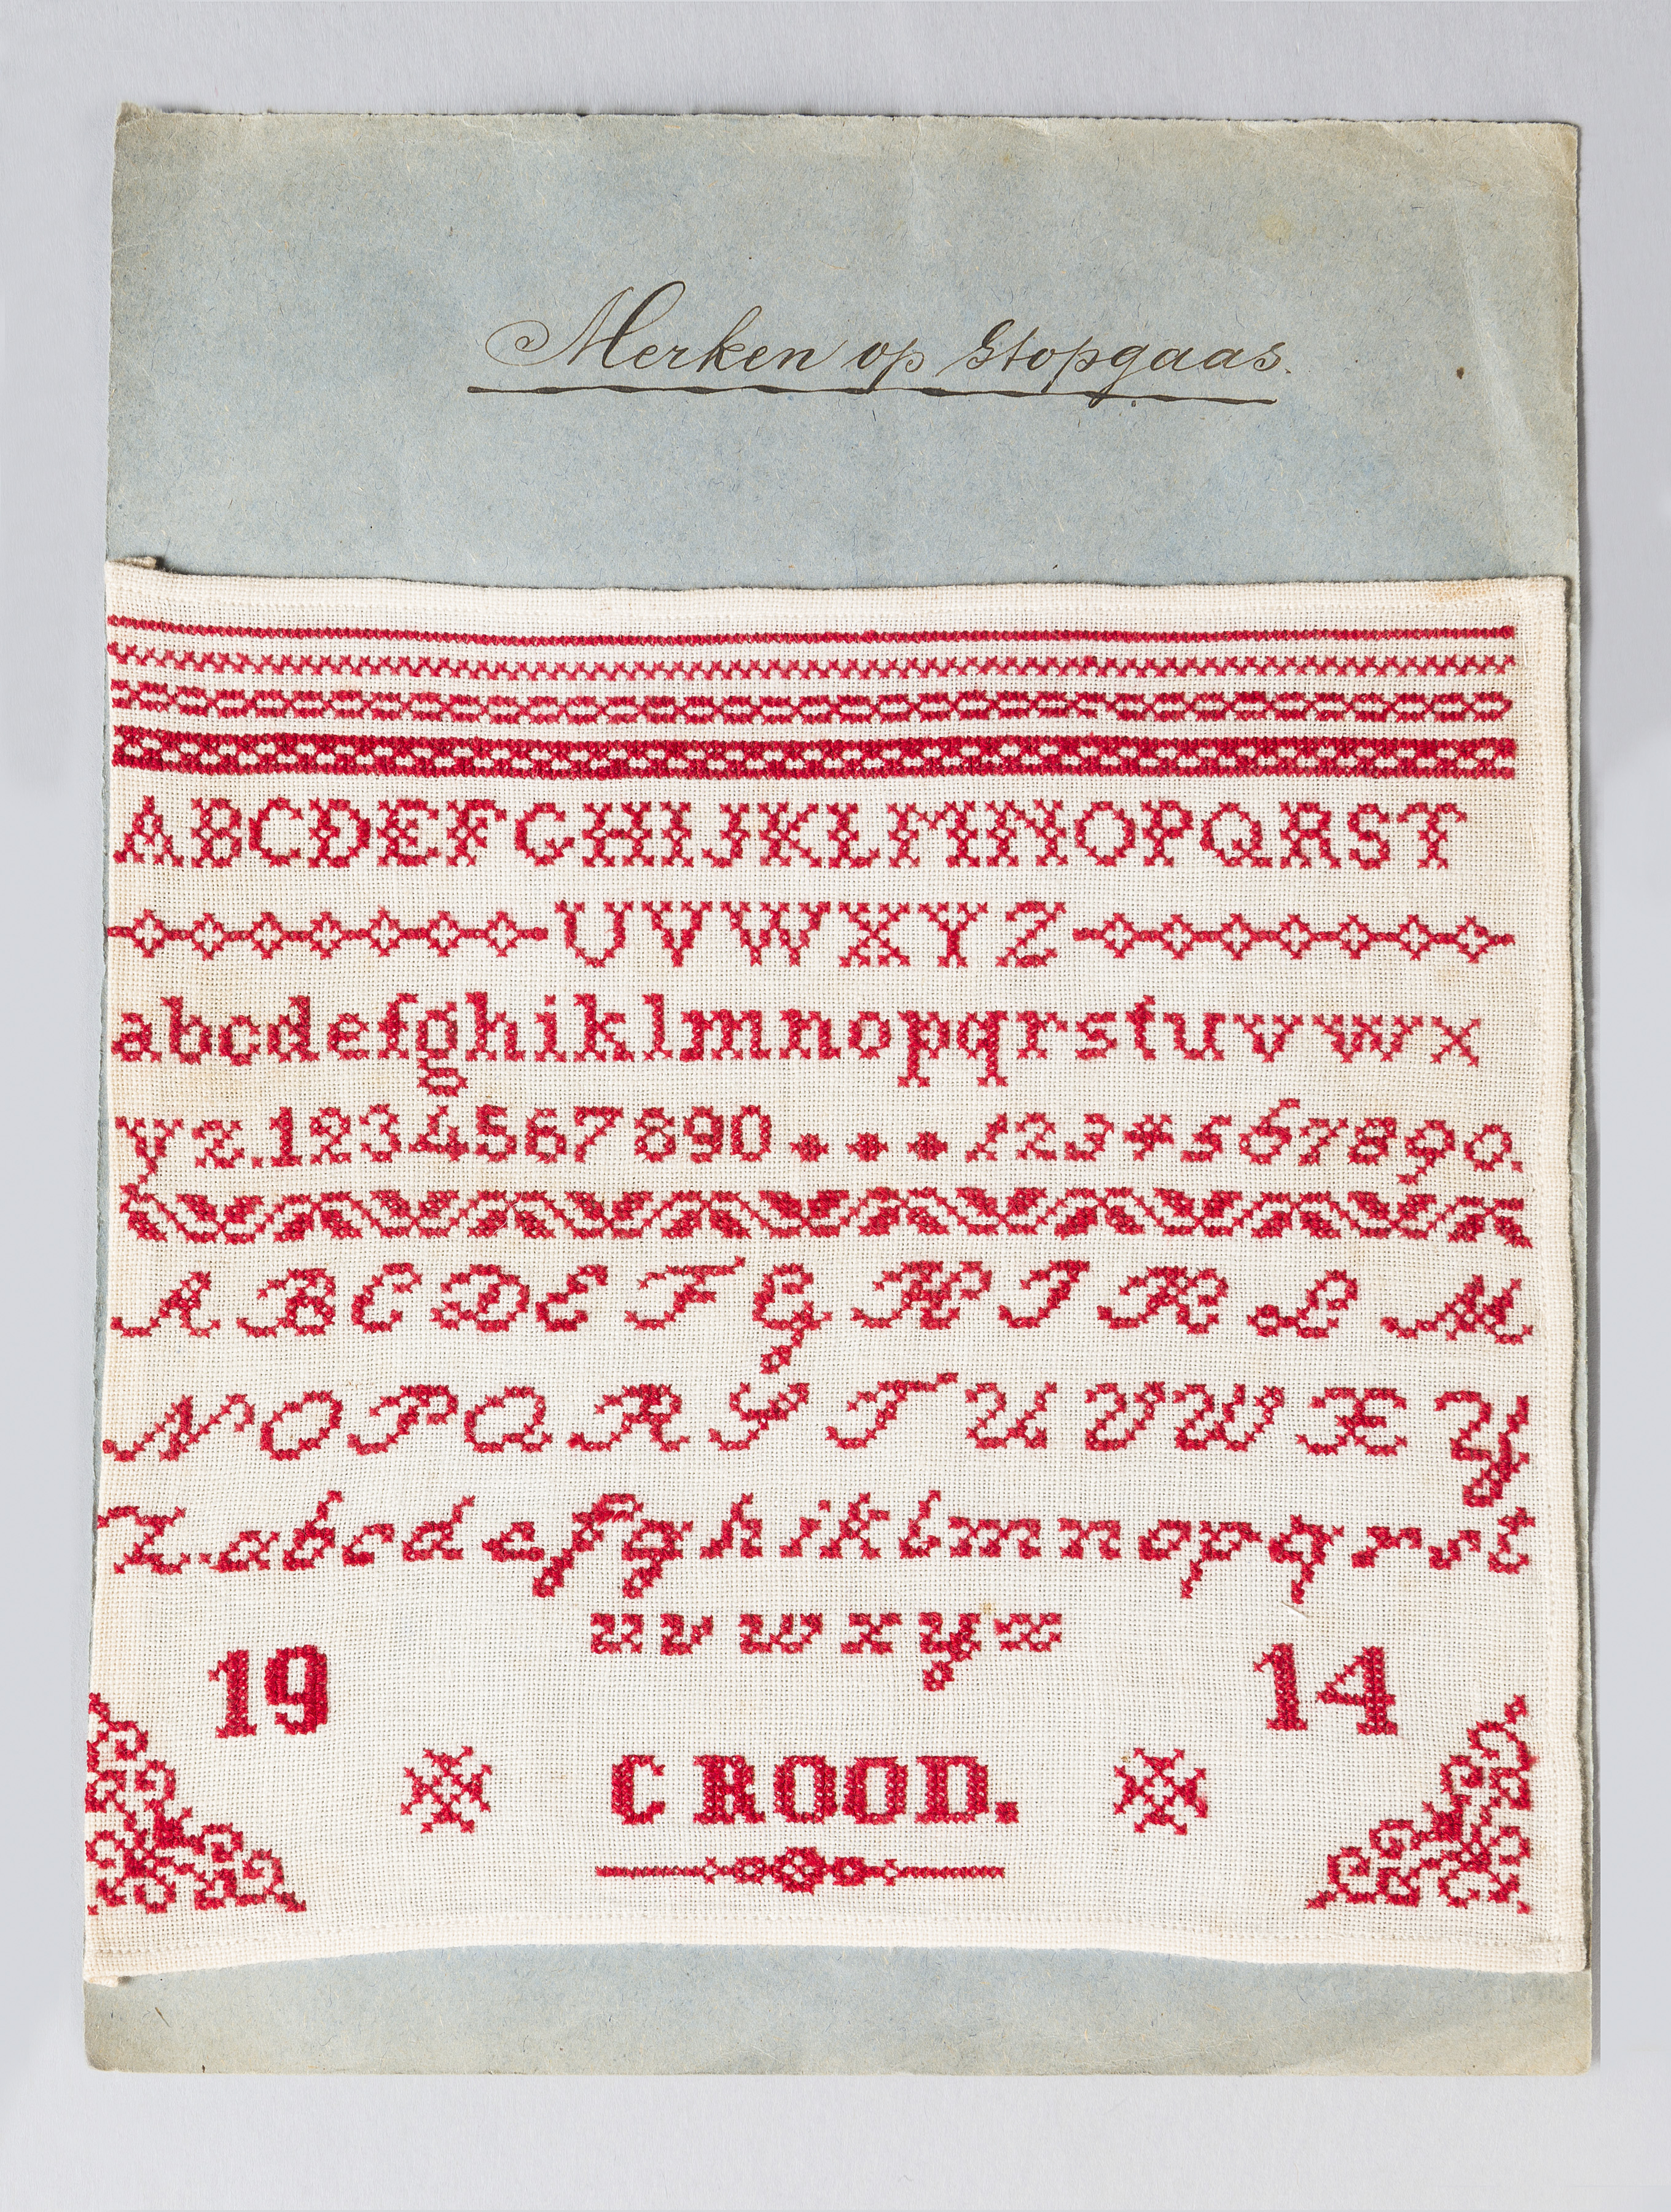 Merken op Stopgaas.
ABCDEFGHIJKLMNOPQRST
UVWXYZ
abcdefghiklmnopqrstuvwx
yz.1234567890 1234567890.
A B C D E F G H I K L M
N O P Q R S T U V W X Y
Z a b c d e f g h i k l m n o p q r s t
u v w x y z
19 14
C ROOD.